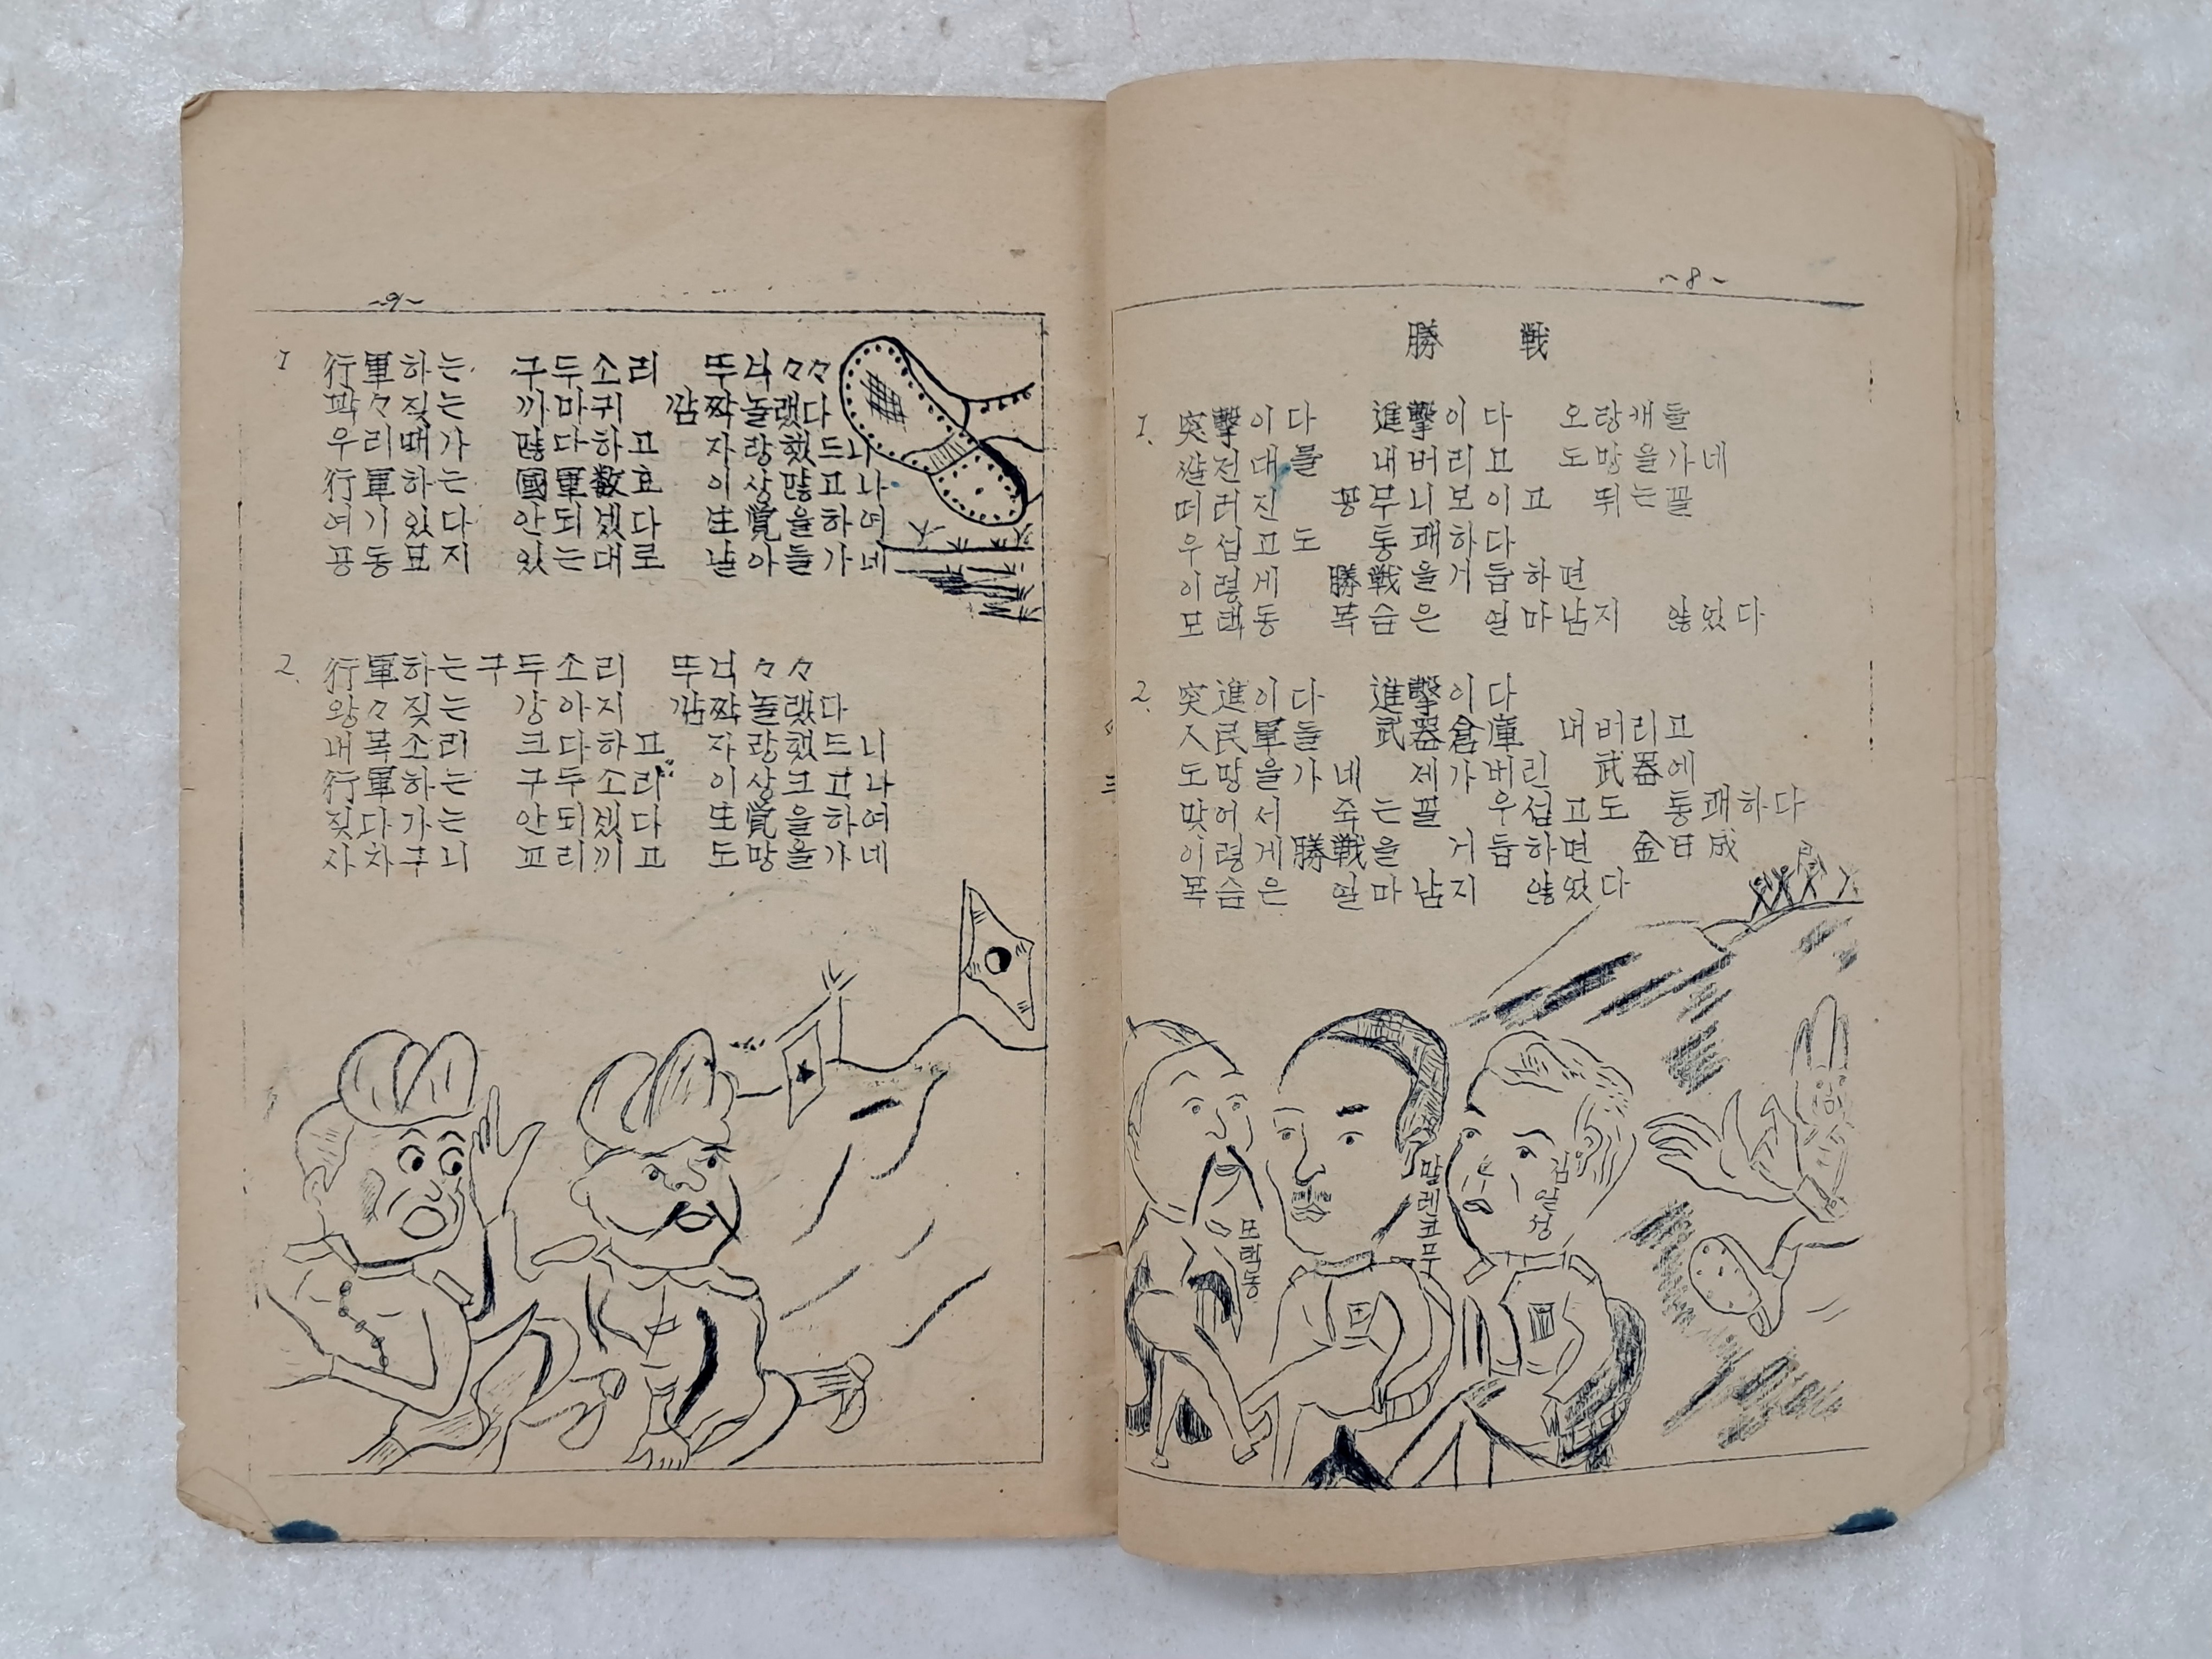 ~8~
勝 戦
1. 突擊이다 進擊이다 오랑캐들
쌀전대를 내버리고 도망을가네
떠러진 꽁무니보이고 뛰는꼴
우섭고도 통쾌하다
이렇게 勝戦을거듭하면
모택동 목슴은 얼마남지 않았다
2. 突進이다 進擊이다
人民軍들 武器倉庫 내버리고
도망을가네 제가버린 武器에
맞어서 죽는꼴 우섭고도 통쾌하다
이렇게勝戦을 거듭하면 金日成
목슴은 얼마남지 않았다
모택동
말렌코푸
김일성
~9~
1 行軍하는 구두소리 뚜닉々々
깍々짖는 까마귀 깜짝놀랬다
우리떼가 많다하고 자랑했드니
行軍하는 國軍数효 이상많고나
여기있다 안되겠다 生覚을하여
공동묘지 있는대로 날아들가네
2. 行軍하는구두소리 뚜닉々々
왕々짖는 강아지 깜짝놀랬다
내목소리 크다하고 자랑했드니
行軍하는 구두소리 이상크고나
짖다가는 안되겠다 生覚을하여
사차구니 꼬리끼고 도망을가네